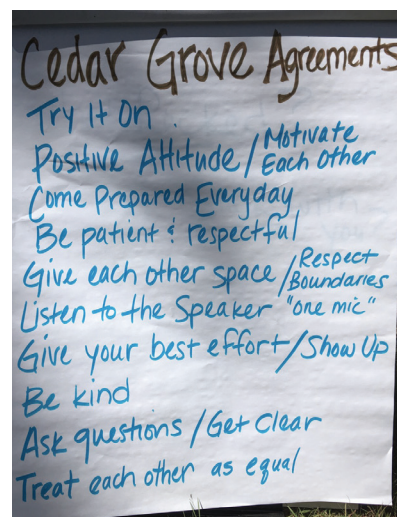 Cedar Grove Agreements
Try It On
Positive Attitude / Motivate Each Other
Come Prepared Everyday
Be patient & respectful
Give each other space / Respect Boundaries
Listen to the Speaker "one mic"
Give your best effort / Show Up
Be kind
Ask questions / Get Clear
Treat each other as equal